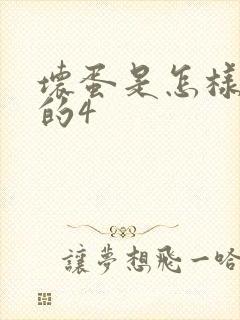 壞蛋是怎樣
的4
讓夢想飛一哈